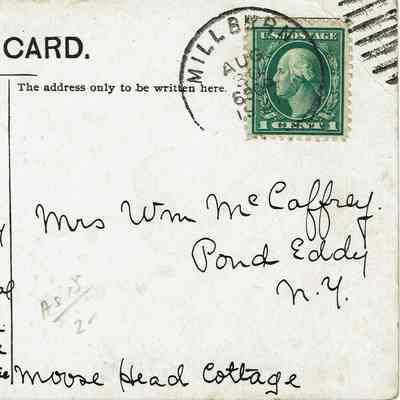 CARD.
The address only to be written here.
MILLBURY
AUG
U.S. POSTAGE
1 CENT 1
Mrs Wm McCaffrey.
Pond Eddy
N.Y.
Moose Head Cottage